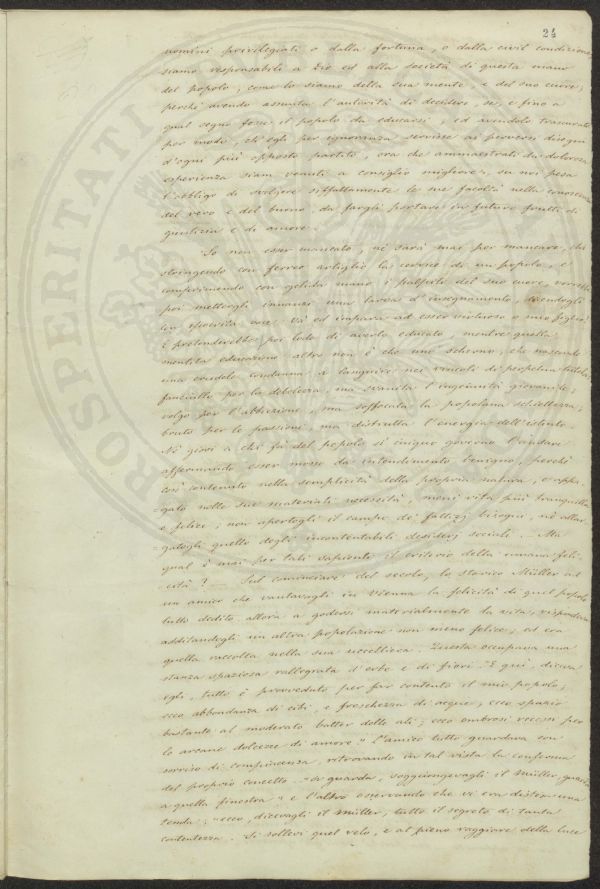 24
uomini privilegiati o dalla fortuna, o dalla civil condizione,
siamo responsabili a Dio ed alla società di questa mano
del popolo, come lo siamo della sua mente, e del suo cuore,
perchè avendo assunta l'autorità di decidere, se, e fino a
qual segno fosse il popolo da educarsi, ed avendolo trascurato
per modo, ch'egli per ignoranza servisse ai perversi disegni
d'ogni più opposto partito, ora che ammaestrati da dolorosa
esperienza siam venuti a consiglio migliore, su noi pesa
l'obbligo di svolgere siffattamente le sue facoltà nella conoscenza
del vero e del buono, da fargli portare in futuro frutti di
giustizia e di amore.
So non esser mancato, nè sarà mai per mancare, chi
stringendo con ferreo artiglio la cervice di un popolo, e
comprimendo con gelida mano i palpiti del suo cuore, vorrebbe
poi mettergli innanzi una larva d'insegnamento, dicendogli
con ipocrita voce: Và ed impara ad esser virtuoso o mio figlio!
E pretenderebbe per lodo di averlo educato, mentre quella
mentita educazione altro non è che uno scherno, che nasconde
una crudele condanna a languire nei vincoli di perpetua tutela:
fanciullo per la debolezza, ma svanita l'ingenuità giovanile;
volgo per l'abbiezione, ma soffocata la popolana schiettezza;
bruto per le passioni, ma distrutta l'energia dell'istinto.
Nè giovi a chi fà del popolo sì iniquo governo l'andare
affermando esser mosso da intendimento benigno, perchè
così contenuto nella semplicità della propria natura, e appa-
gato nelle sue materiali necessità, meni vita più tranquilla
e felice; non apertogli il campo de' fattizj bisogni, nè allar-
gatogli quello degli incontentabili desiderj sociali. — Ma
qual è mai per tali sapienti il criterio della umana feli-
cità? — Sul cominciare del secolo, lo storico Müller ad
un amico che vantavagli in Vienna la felicità di quel popolo
tutto dedito allora a godersi materialmente la vita, rispondeva
additandogli un'altra popolazione non meno felice, ed era
quella raccolta nella sua uccelliera. Questa occupava una
stanza spaziosa rallegrata d'erbe e di fiori. "E qui, diceva
egli, tutto è provveduto per far contento il mio popolo;
ecco abbondanza di cibi, e freschezza di acque; ecco spazio
bastante al moderato batter delle ali; ecco ombrosi recessi per
le arcane dolcezze di amore." L'amico tutto guardava con
sorriso di compiacenza, ritrovando in tal vista la conferma
del proprio concetto. "Or guarda, soggiongevagli il Müller, guarda
a quella finestra" e l'altro osservando che vi era distesa una
tenda; "ecco, dicevagli il Müller, tutto il segreto di tanta
contentezza. Si sollevi quel velo, e al pieno raggiare della luce